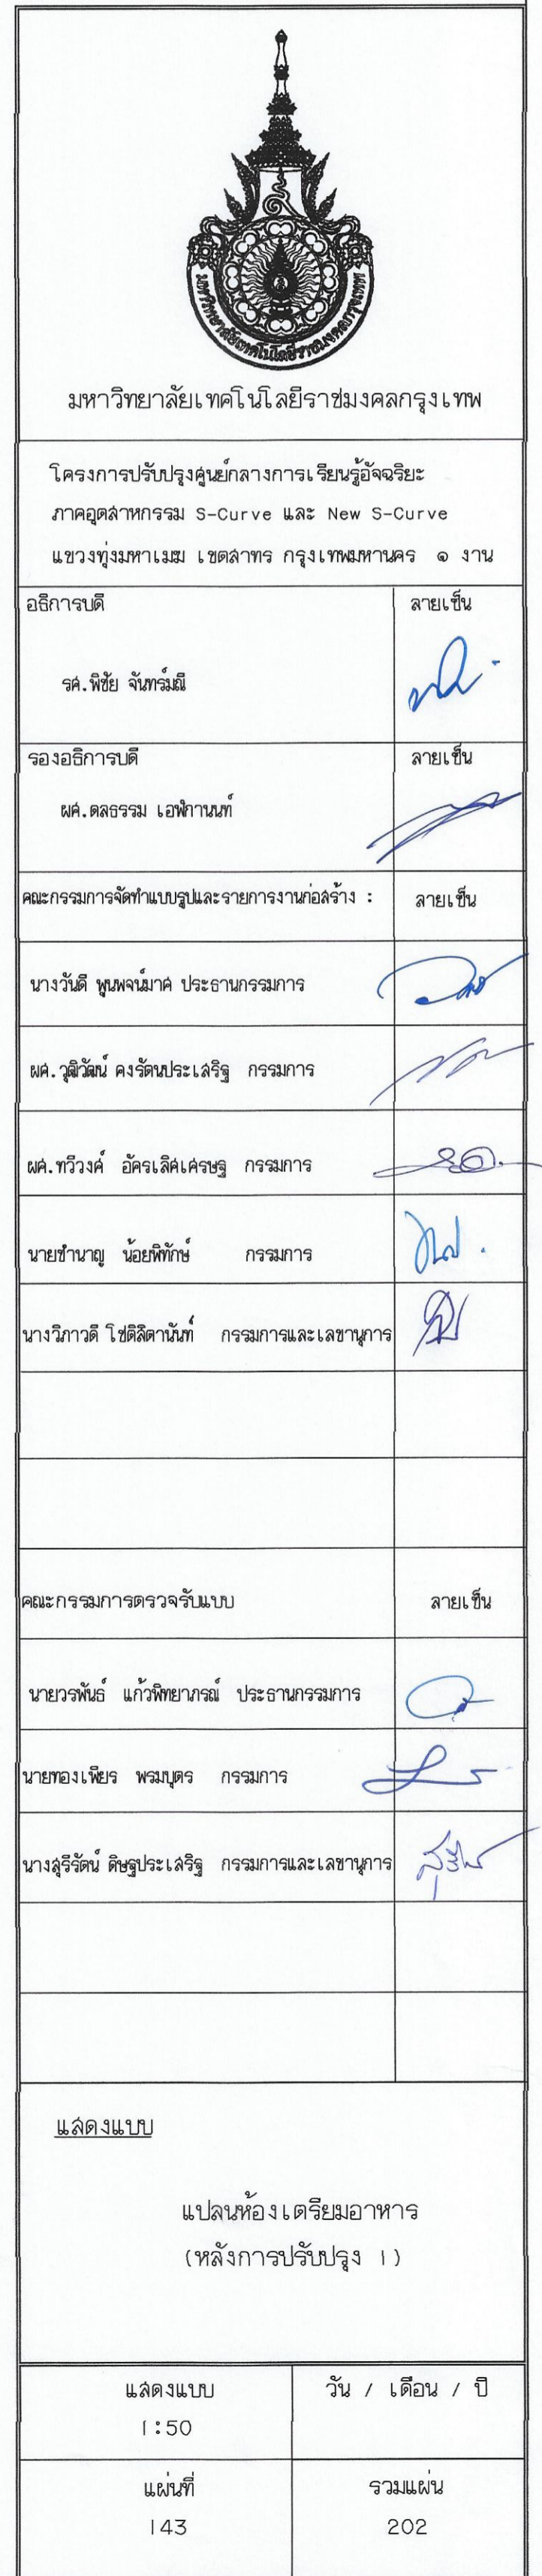 มหาวิทยาลัยเทคโนโลยีราชมงคลกรุงเทพ
มหาวิทยาลัยเทคโนโลยีราชมงคลกรุงเทพ
โครงการปรับปรุงศูนย์กลางการเรียนรู้อัจฉริยะ
ภาคอุตสาหกรรม S-Curve และ New S-Curve
แขวงทุ่งมหาเมฆ เขตสาทร กรุงเทพมหานคร ๑ งาน
อธิการบดี ลายเซ็น
รศ.พิชัย จันทร์มณี
รองอธิการบดี ลายเซ็น
ผศ.ดลธรรม เอฬกานนท์
คณะกรรมการจัดทำแบบรูปและรายการงานก่อสร้าง : ลายเซ็น
นางวันดี พูนพจน์มาศ ประธานกรรมการ
ผศ.วุฒิวัฒน์ คงรัตนประเสริฐ กรรมการ
ผศ.ทวีวงศ์ อัครเลิศเศรษฐ กรรมการ
นายชำนาญ น้อยพิทักษ์ กรรมการ
นางวิภาวดี โชติลิตานันท์ กรรมการและเลขานุการ
คณะกรรมการตรวจรับแบบ ลายเซ็น
นายวรพันธ์ แก้วพิทยาภรณ์ ประธานกรรมการ
นายทองเพียร พรมบุตร กรรมการ
นางสุรีรัตน์ ดิษฐประเสริฐ กรรมการและเลขานุการ
แสดงแบบ
แปลนห้องเตรียมอาหาร
(หลังการปรับปรุง 1)
แสดงแบบ วัน / เดือน / ปี
1:50
แผ่นที่ รวมแผ่น
143 202